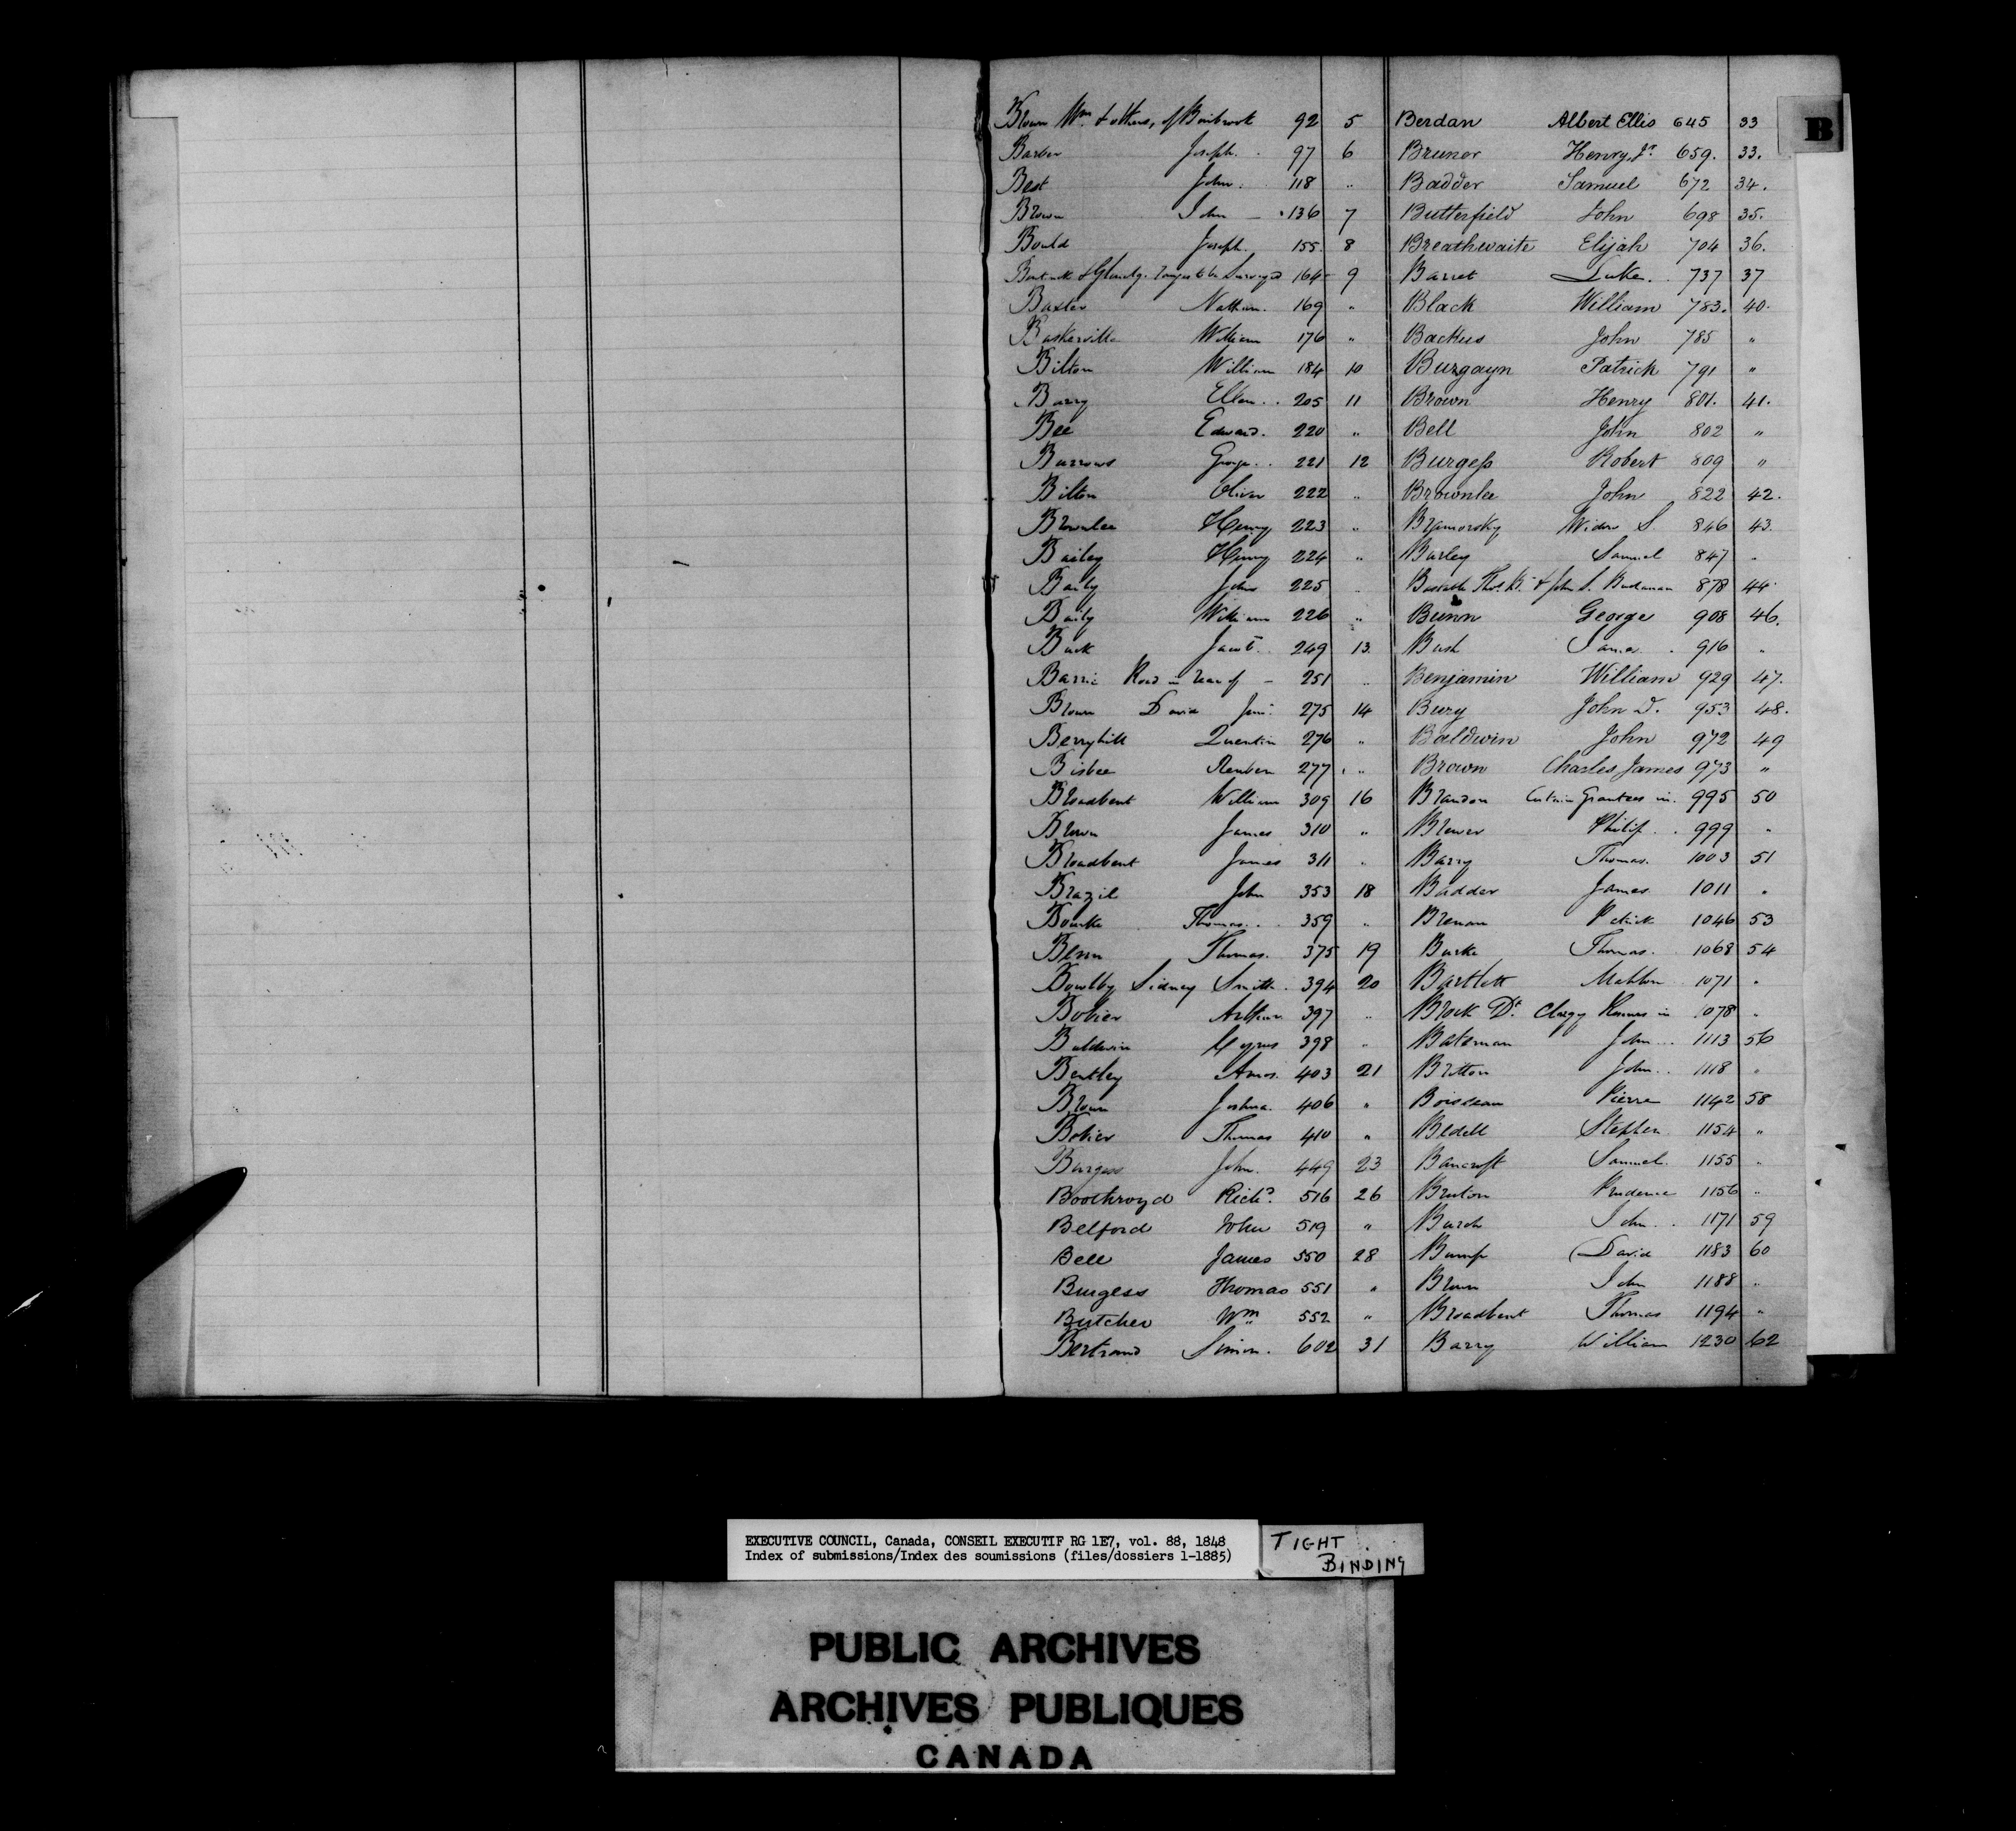 B
Brown Wm & others, of Binbrook 92 5
Barber Joseph. 97 6
Best John. 118 "
Brown John — 136 7
Bould Joseph. 155 8
Bentinck & Glenelg. to be Surveyed 164 9
Baxter Nathan. 169 "
Baskerville William 176 "
Bilton William 184 10
Barry Ellen. 205 11
Bee Edward. 220 "
Burrows George. 221 12
Bilton Oliver 222 "
Brownlee Henry 223 "
Bailey Henry 224 "
Baily John 225 "
Baily William 226 "
Buck Jacob 249 13.
Barrie Road in rear of — 251 "
Brown David Junr. 275 14
Berryhill Quentin 276 "
Bisbee Reuben 277 "
Broadbent William 309 16
Brown James 310 "
Broadbent James 311 "
Brazil John 353 18
Bourke Thomas. 359 "
Benn Thomas. 375 19
Bowlby Sidney Smith. 394 20
Bobier Arthur 397 "
Baldwin Cyrus 398 "
Bentley Amos. 403 21
Brown Joshua. 406 "
Bobier Thomas 410 "
Burgess John. 449 23
Boothroyd Richd. 516 26
Belford John 519 "
Bell James 550 28
Burgess Thomas 551 "
Butcher Wm 552 "
Bertrand Simon. 602 31
Berdan Albert Ellis 645 33
Bruner Henry, Jr. 659. 33.
Badder Samuel 672 34.
Butterfield John 698 35.
Breathwaite Elijah 704 36.
Barret Luke. 737 37
Black William 783. 40.
Backus John 785 "
Burgayn Patrick 791 "
Brown Henry 801. 41.
Bell John 802 "
Burgess Robert 809 "
Brownlee John 822 42.
Widow S. 846 43.
Burley Samuel 847 "
Thos. & John S. Buchanan 878 44.
Bunn George 908 46.
Bush James. 916 "
Benjamin William 929 47.
Bury John D. 953 48.
Baldwin John 972 49
Brown Charles James 973 "
Brandon Certain Grantees in. 995 50
Brewer Philip. 999 "
Barry Thomas. 1003 51
Badder James 1011 "
Brenan Patrick 1046 53
Burke Thomas. 1068 54
Bartlett Mahlon 1071 "
Brock Dt. Clergy Reserves in 1078 "
Bateman John 1113 56
Britton John. 1118 "
Boisseau Pierre 1142 58
Bedell Stephen 1154 "
Bancroft Samuel. 1155 "
Bruton Prudence 1156 "
Burch John. 1171 59
Bump David 1183 60
Brown John 1188 "
Broadbent Thomas 1194 "
Barry William 1230 62
EXECUTIVE COUNCIL, Canada, CONSEIL EXECUTIF RG 1E7, vol. 88, 1848
Index of submissions/Index des soumissions (files/dossiers 1-1885)
TIGHT
BINDING
PUBLIC ARCHIVES
ARCHIVES PUBLIQUES
CANADA